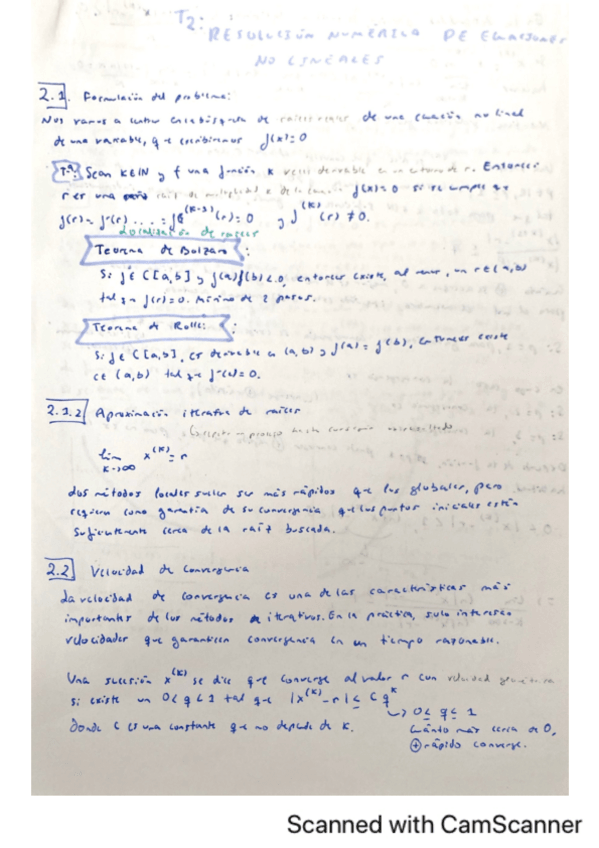 T2:
RESOLUCIÓN NUMÉRICA DE ECUACIONES
NO LINEALES
2.1. Formulación del problema:
Nos vamos a centrar en la búsqueda de raíces reales de una ecuación no lineal
de una variable, que escribiremos f(x)=0
Sean K∈IN y f una función K veces derivable en un entorno de r. Entonces
r es una raíz de multiplicidad K de la f(x)=0 si se cumple que
f(r)= f'(r) ... = f^(K-1) (r)=0 y f^(K) (r) ≠ 0.
Localización de raíces
Teorema de Bolzano :
Si f∈ C[a,b] y f(a)f(b)<0, entonces existe, al menos, un r∈(a,b)
tal que f(r)=0. Mínimo de 2 pasos.
Teorema de Rolle: :
Si f∈ C[a,b], es derivable en (a,b) y f(a)=f(b), entonces existe
c∈ (a,b) tal que f'(c)=0.
2.1.2 Aproximación iterativa de raíces
lim x^(K) = r
K→∞
Los métodos locales suelen ser más rápidos que los globales, pero
requieren como garantía de su convergencia que los puntos iniciales estén
suficientemente cerca de la raíz buscada.
2.2 Velocidad de convergencia
La velocidad de convergencia es una de las características más
importantes de los métodos iterativos. En la práctica, solo interesan
velocidades que garanticen convergencia en un tiempo razonable.
Una sucesión x^(K) se dice que converge al valor r con velocidad geométrica
si existe un 0<q<1 tal que |x^(K) - r| ≤ C q^K
↳ 0≤ q≤ 1
donde C es una constante que no depende de K.
Cuánto más cerca de 0,
⊕ rápido converge.
Scanned with CamScanner